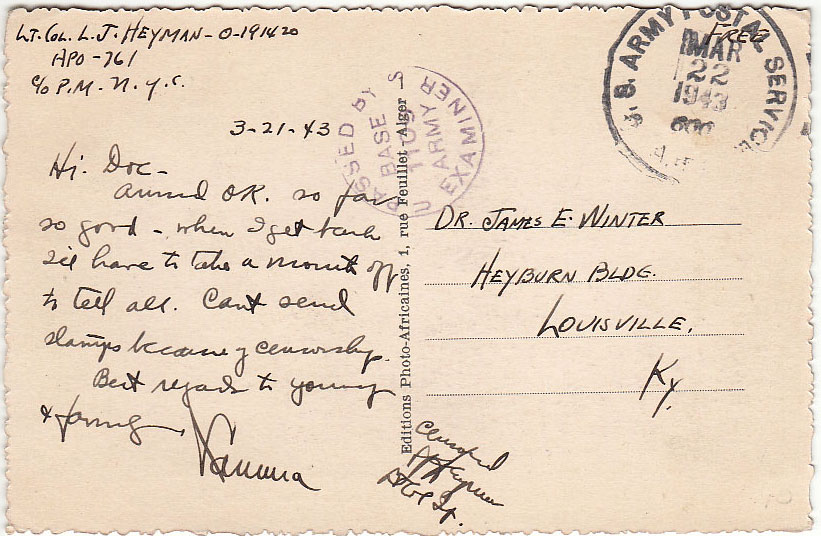 LT. COL. L. J. HEYMAN - O-191420
APO - 761
c/o P.M. N.Y.C.
3-21-43
Hi Doc-
Arrived OK. so far
so good - when I get back
I'll have to take a month off
to tell all. Cant send
stamps because of censorship.
Best regards to you
& family,
PASSED BY
BASE
1109
U S ARMY
EXAMINER
Editions Photo-Africaines. 1, rue Feuillet - Alger
FREE
U.S. ARMY POSTAL SERVICE
MAR
22
1943
DR. JAMES E. WINTER
HEYBURN BLDG.
LOUISVILLE,
Ky.
Censored
LJHeyman